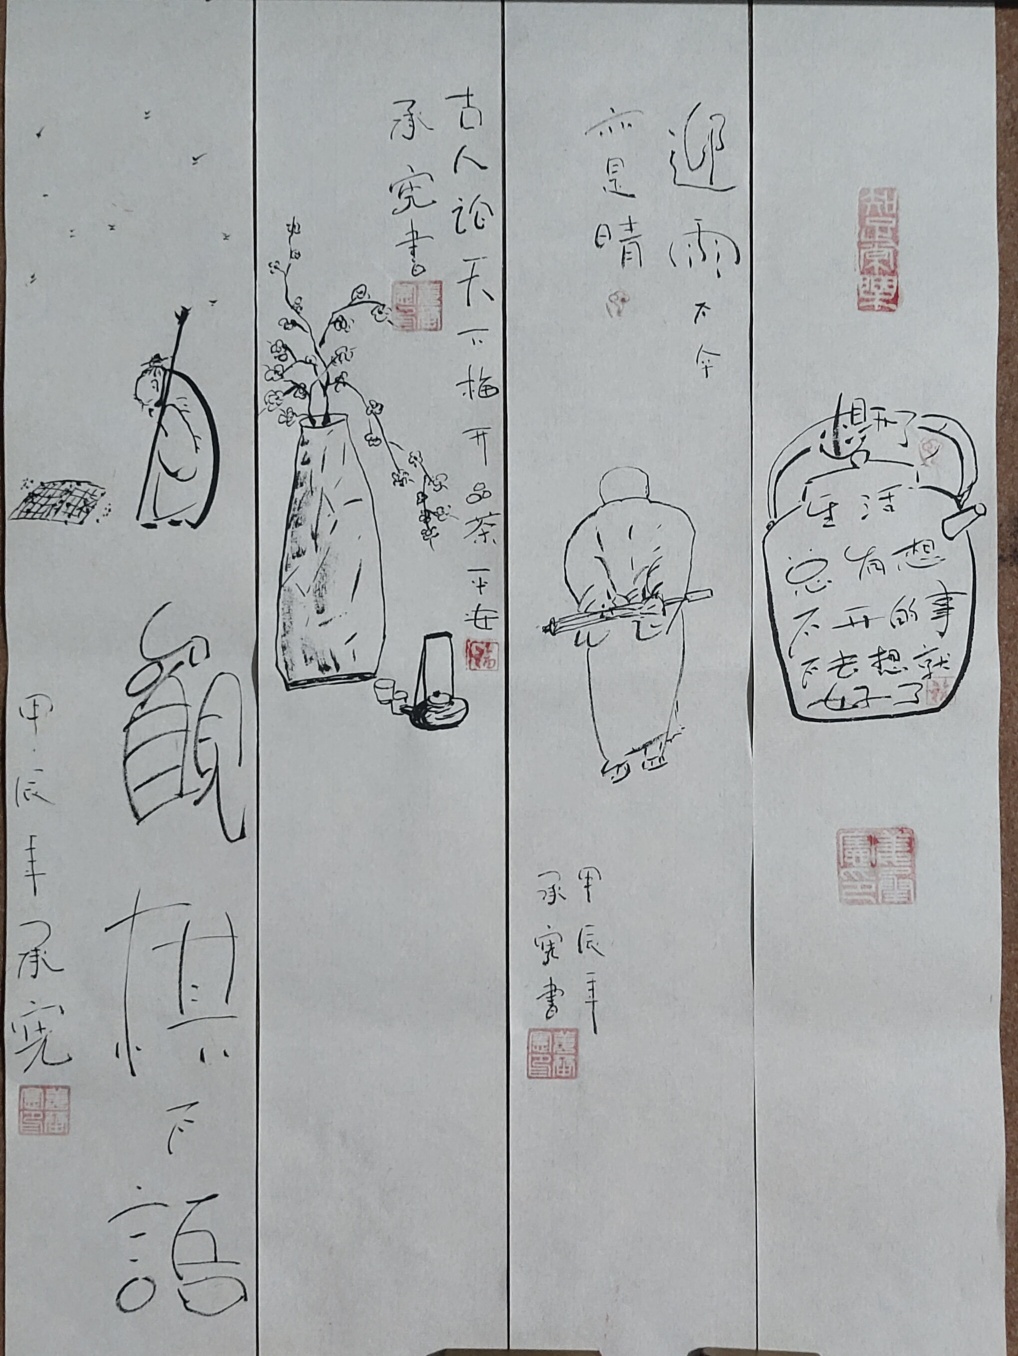 迎雨不伞
亦是晴
甲辰年
承宪書
知足常樂
想开了
生活
总有想
不开的事
不去想就
好了
古人论天下梅开品茶平安
承宪書
觀棋不語
甲辰年承宪